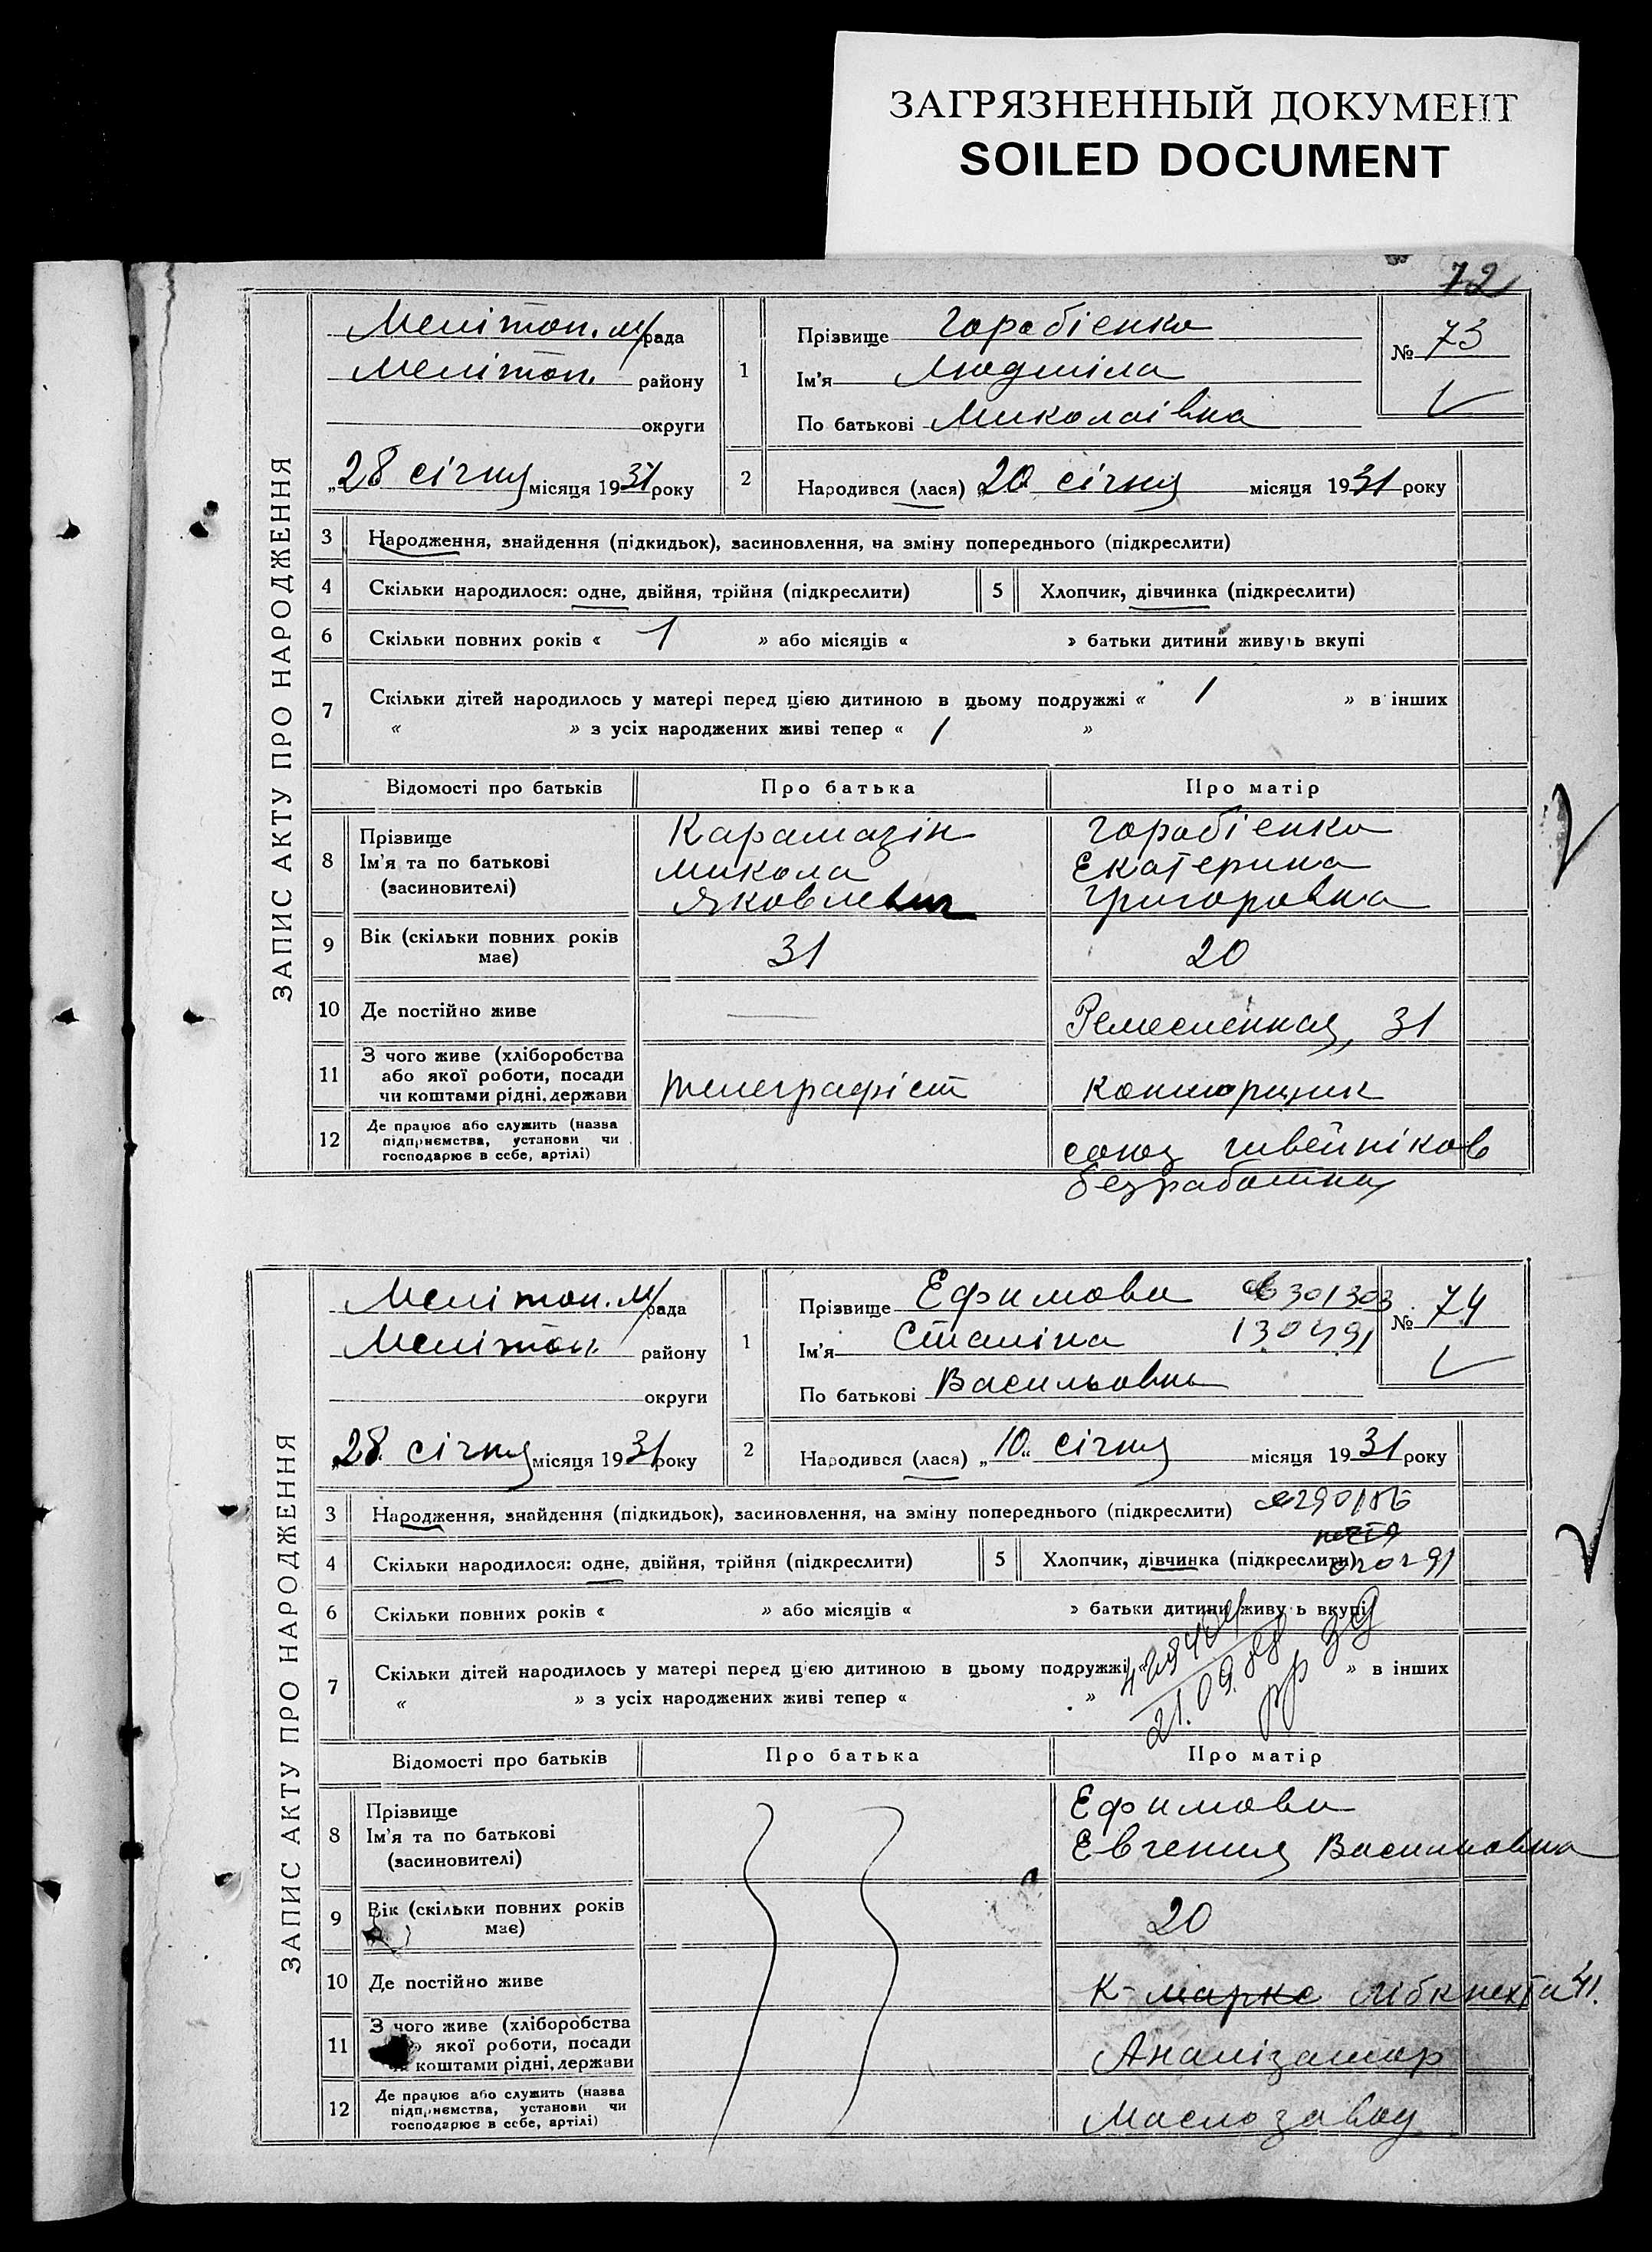 ЗАГРЯЗНЕННЫЙ ДОКУМЕНТ
SOILED DOCUMENT
72
ЗАПИС АКТУ ПРО НАРОДЖЕННЯ
Мелітоп. м/рада
Мелітоп. району
округи
„28 січня місяця 1931 року
1
Прізвище Горобієнко
Ім'я Людміла
По батькові Миколаівна
№ 73
2
Народився (лася) „20 січня місяця 1931 року
3 Народження, знайдення (підкидьок), засиновлення, на зміну попереднього (підкреслити)
4 Скільки народилося: одне, двійня, трійня (підкреслити) 5 Хлопчик, дівчинка (підкреслити)
6 Скільки повних років « 1 » або місяців « » батьки дитини живуть вкупі
7 Скільки дітей народилось у матері перед цією дитиною в цьому подружжі « 1 » в інших
« » з усіх народжених живі тепер « 1 »
Відомості про батьків Про батька Про матір
8 Прізвище Карамазін Горобієнко
Ім'я та по батькові Микола Екатерина
(засновителі) Яковлевич Григоровна
9 Вік (скільки повних років має) 31 20
10 Де постійно живе — Ремесленная, 31
11 З чого живе (хліборобства
або якої роботи, посади
чи коштами рідні, держави телеграфіст
12 Де працює або служить (назва
підприємства, установи чи
господарює в себе, артілі) союз швейніков
безработна
ЗАПИС АКТУ ПРО НАРОДЖЕННЯ
Мелітоп. м/рада
Мелітоп. району
округи
„28 січня місяця 1931 року
1
Прізвище Ефимова 301303
Ім'я Сталіна 130491
По батькові Васильовна
№ 74
2
Народився (лася) „10 січня місяця 1931 року
3 Народження, знайдення (підкидьок), засиновлення, на зміну попереднього (підкреслити) 290186
4 Скільки народилося: одне, двійня, трійня (підкреслити) 5 Хлопчик, дівчинка (підкреслити) 020291
6 Скільки повних років « » або місяців « » батьки дитини живуть вкупі
7 Скільки дітей народилось у матері перед цією дитиною в цьому подружжі « » в інших
« » з усіх народжених живі тепер « »
21.09.88
Відомості про батьків Про батька Про матір
8 Прізвище Ефимова
Ім'я та по батькові Евгения Васильовна
(засиновителі)
9 Вік (скільки повних років має) 20
10 Де постійно живе К-маркс лібкнехта 41.
11 З чого живе (хліборобства
якої роботи, посади
коштами рідні, держави Аналізатор
12 Де працює або служить (назва
підприємства, установи чи
господарює в себе, артілі) Маслозавод